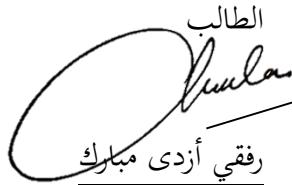 الطالب
رفقي أزدى مبارك